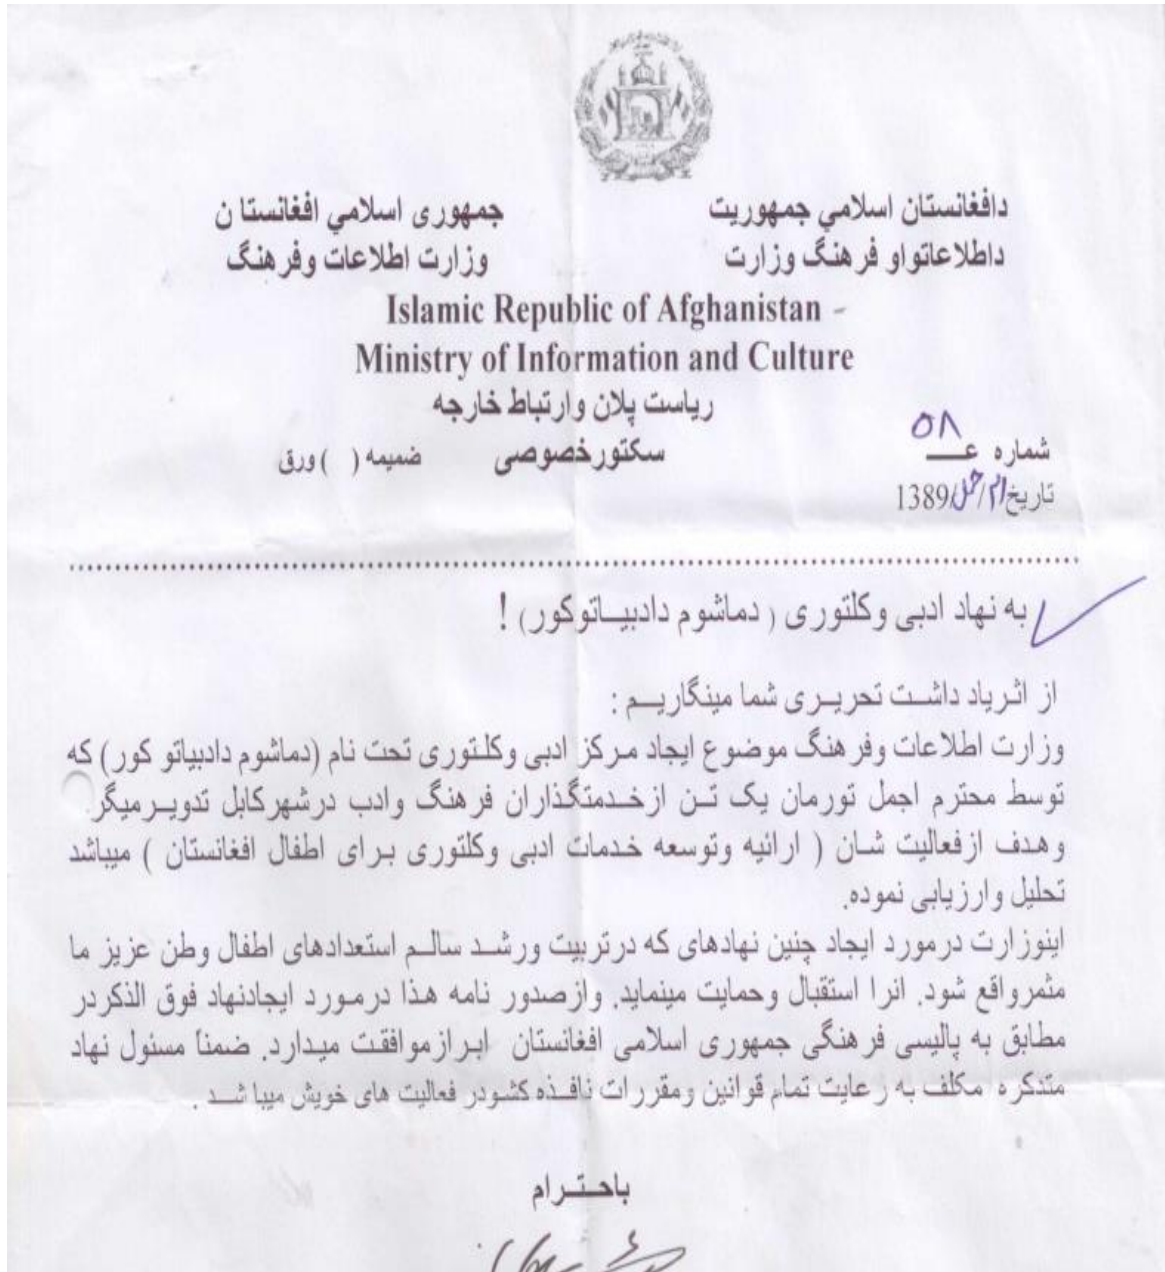 دافغانستان اسلامي جمهوريت
جمهوری اسلامي افغانستا ن
داطلاعاتواو فرهنگ وزارت
وزارت اطلاعات وفرهنگ
Islamic Republic of Afghanistan -
Ministry of Information and Culture
ریاست پلان وارتباط خارجه
شماره عـــ ۵۸ سکتورخصوصی ضمیمه ( ) ورق
تاریخ / حمل/1389
به نهاد ادبی وکلتوری ( دماشوم دادبیــاتوکور) !
از اثریاد داشــت تحریــری شما مینگاریــم :
وزارت اطلاعات وفرهنگ موضوع ایجاد مـرکز ادبی وکلـتوری تحت نام (دماشوم دادبیاتو کور) که
توسط محترم اجمل تورمان یک تـن ازخـدمتگذاران فرهنگ وادب درشهرکابل تدویـرمیگر.
وهدف ازفعالیت شـان ( ارائیه وتوسعه خدمـات ادبی وکلتوری بـرای اطفال افغانستان ) میباشد
تحلیل وارزیابی نموده.
اینوزارت درمورد ایجاد چنین نهادهای که درتربیت ورشــد سالــم استعدادهای اطفال وطن عزیز ما
مثمرواقع شود. انرا استقبال وحمایت مینماید. وازصدور نامه هـذا درمـورد ایجادنهاد فوق الذکردر
مطابق به پالیسی فرهنگی جمهوری اسلامی افغانستان ابـرازموافقت میـدارد. ضمناً مسئول نهاد
متذکره مکلف به رعایت تمام قوانین ومقررات نافـذه کشودر فعالیت های خویش میبا شــد .
باحـتـرام